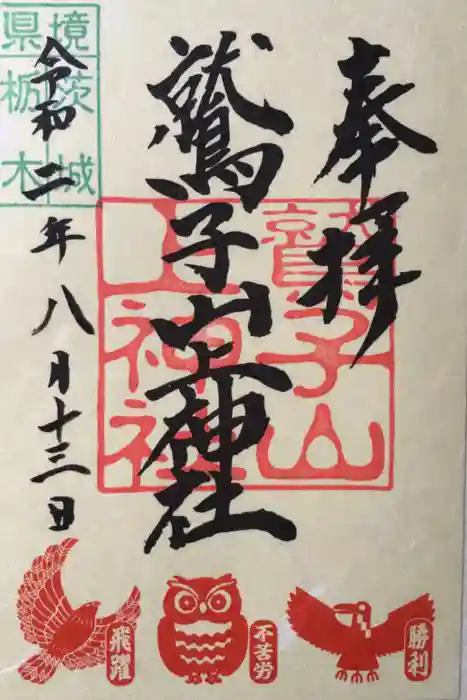 奉拝
鷲子山上神社
令和二年八月十三日
鷲子山
上神社
境茨城
県栃木
飛躍
不苦労
勝利